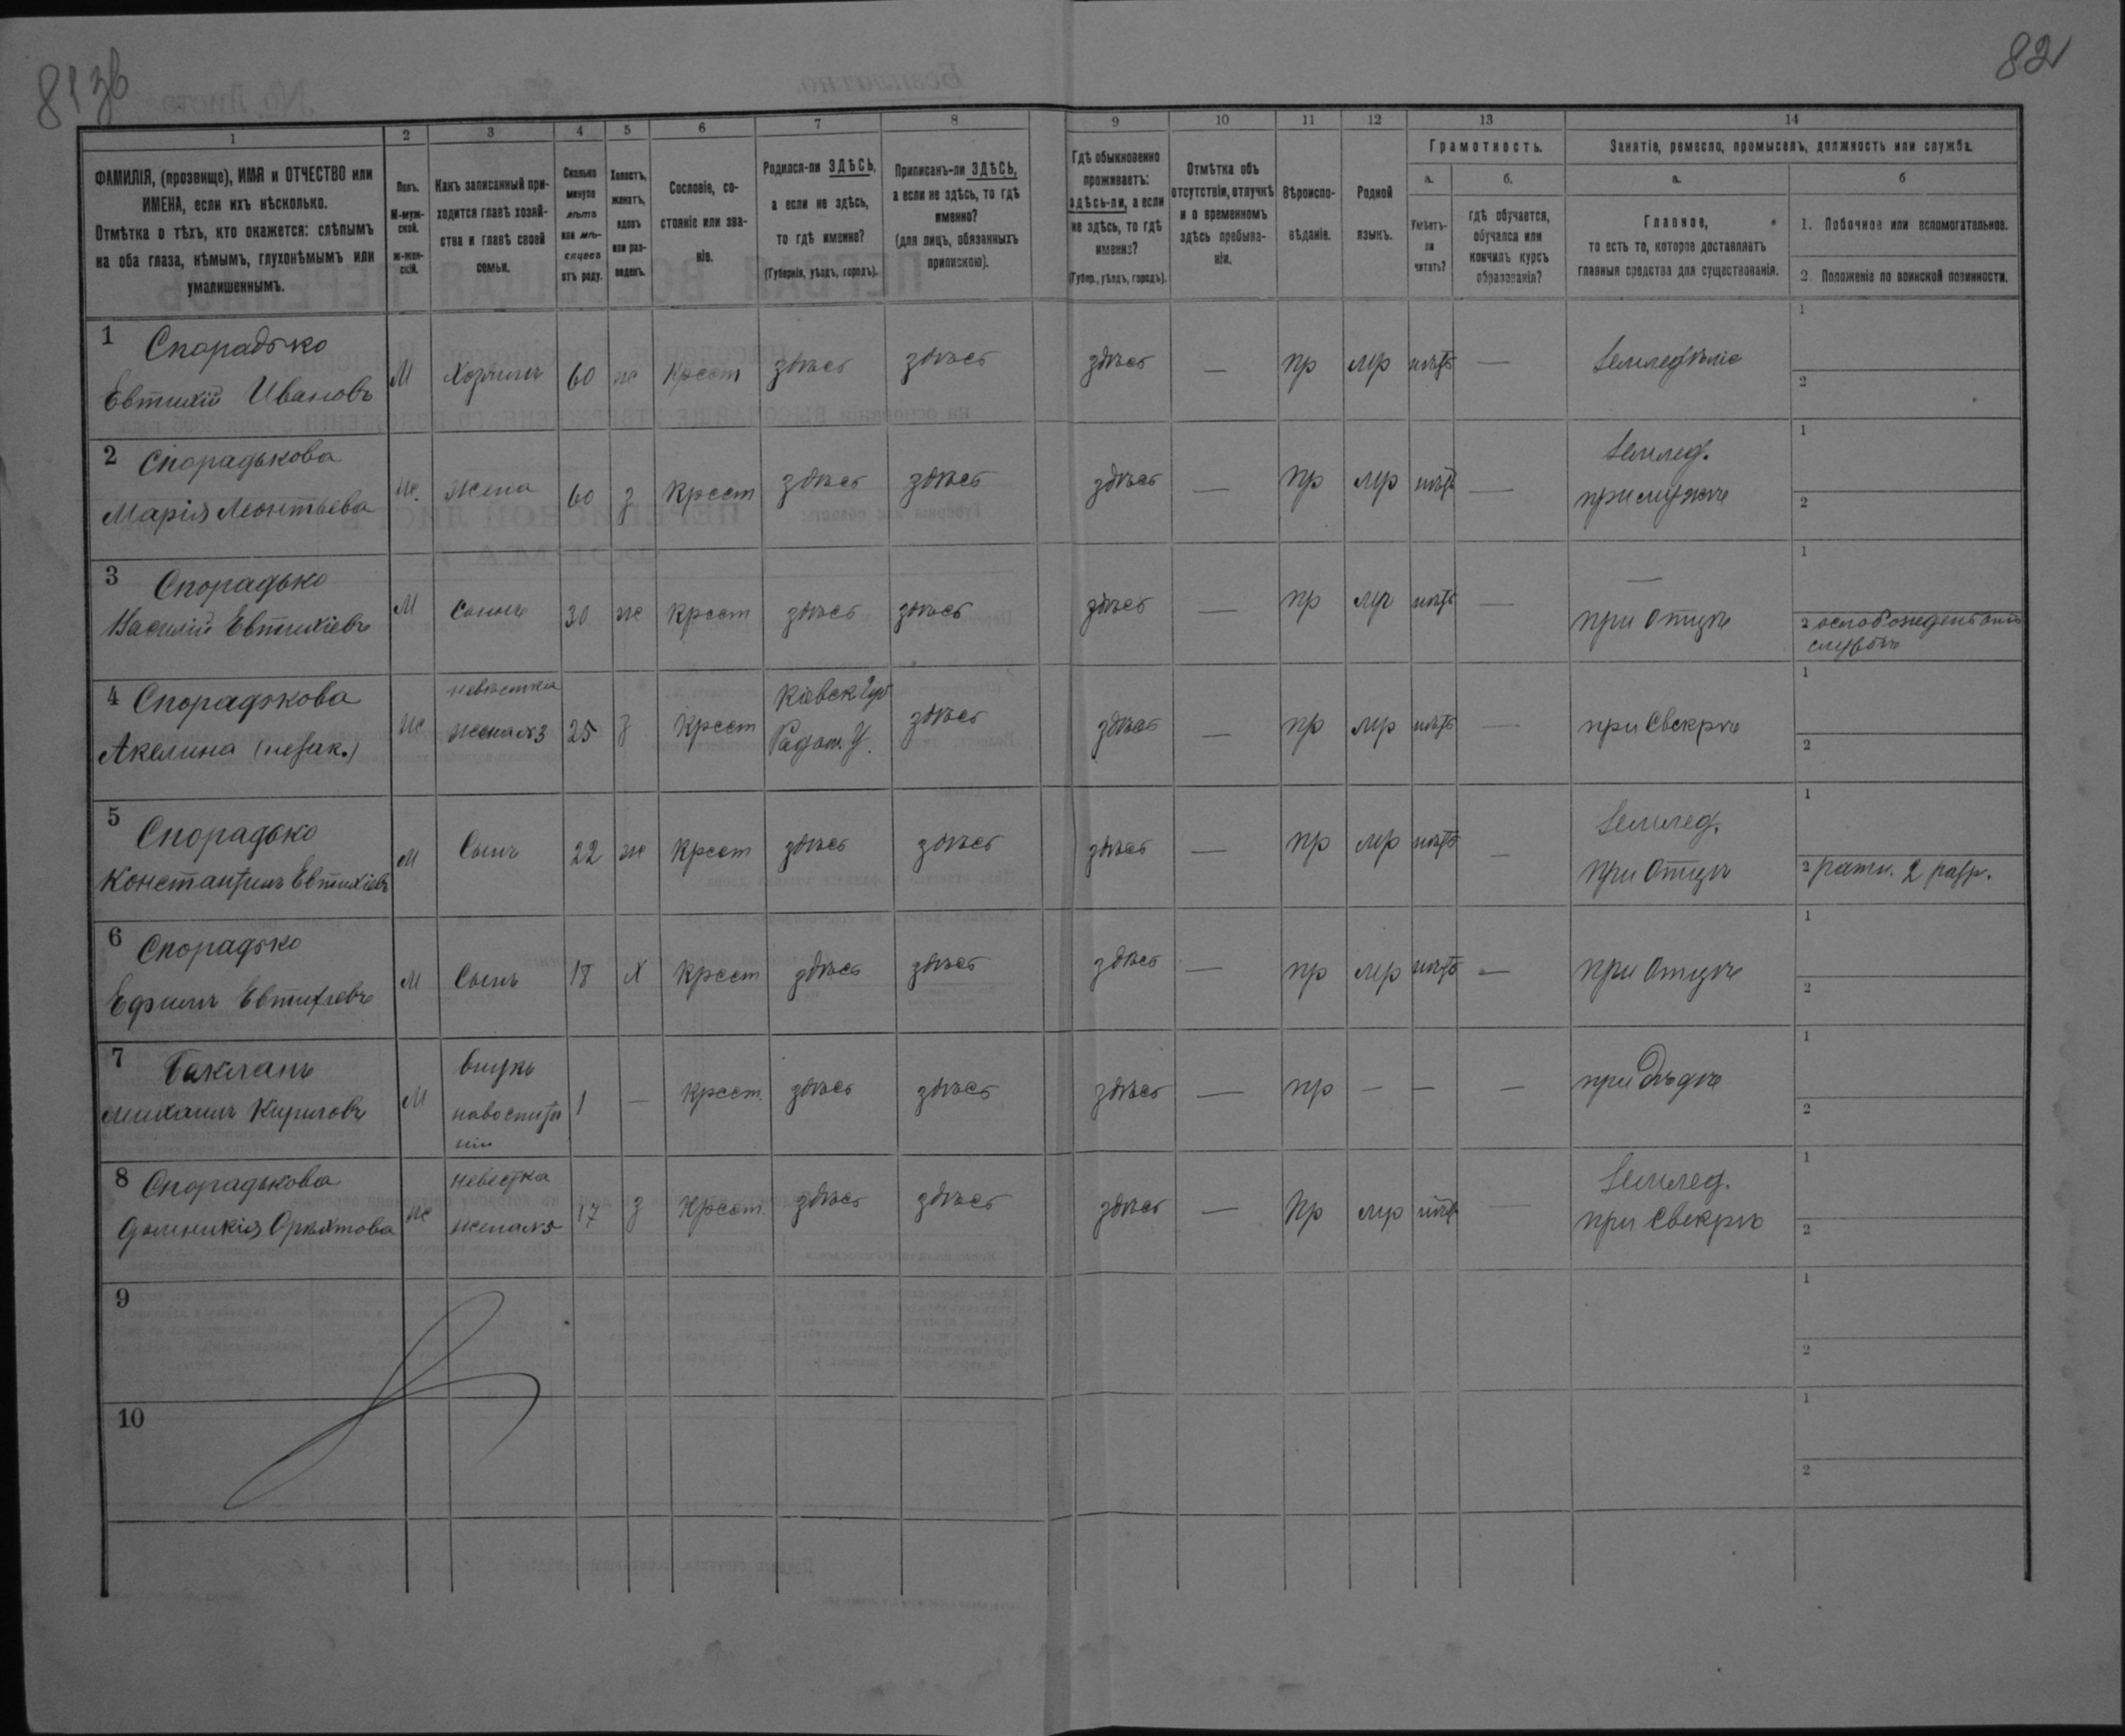 81 зв
82
1
2
3
4
5
6
7
8
9
10
11
12
13
14
ФАМИЛІЯ, (прозвище), ИМЯ и ОТЧЕСТВО или
ИМЕНА, если ихъ нѣсколько.
Отмѣтка о тѣхъ, кто окажется: слѣпымъ
на оба глаза, нѣмымъ, глухонѣмымъ или
умалишеннымъ.
Полъ.
М-муж-
ской.
ж-жен-
скій.
Какъ записанный при-
ходится главѣ хозяй-
ства и главѣ своей
семьи.
Сколько
минуло
лѣтъ
или мѣ-
сяцевъ
отъ роду.
Холостъ,
женатъ,
вдовъ
или раз-
веденъ.
Сословіе, со-
стояніе или зва-
ніе.
Родился-ли ЗДѢСЬ,
а если не здѣсь,
то гдѣ именно?
(Губернія, уѣздъ, городъ).
Приписанъ-ли ЗДѢСЬ,
а если не здѣсь, то гдѣ
именно?
(для лицъ, обязанныхъ
припискою).
Гдѣ обыкновенно
проживаетъ:
здѣсь-ли, а если
не здѣсь, то гдѣ
именно?
(Губер., уѣздъ, городъ).
Отмѣтка объ
отсутствіи, отлучкѣ
и о временномъ
здѣсь пребыва-
ніи.
Вѣроиспо-
вѣданіе.
Родной
языкъ.
Грамотность.
а.
Умѣетъ-
ли
читать?
б.
гдѣ обучается,
обучался или
кончилъ курсъ
образованія?
Занятіе, ремесло, промыселъ, должность или служба.
а.
Главное,
то есть то, которое доставляетъ
главныя средства для существованія.
б
1. Побочное или вспомогательное.
2 Положеніе по воинской повинности.
1 Спорадько
Евтихій Ивановъ
М Хозяинъ 60 ж Крест здѣсь здѣсь здѣсь — пр мр нѣтъ — Земледѣліе
1
2
2 Спорадькова
Марія Леонтьева
ж. жена 60 з Крест здѣсь здѣсь здѣсь — пр мр нѣтъ —
Землед.
при мужѣ
1
2
3 Спорадько
Василій Евтихіевъ
М Сынъ 30 ж Крест здѣсь здѣсь здѣсь — пр мр нѣтъ —
—
при Отцѣ
1
2 освобожденъ отъ
службы
4 Спорадькова
Акелина (незак.)
ж
невѣстка
жена №3
25 з Крест
Кіевск Губ
Радом. У.
здѣсь здѣсь — пр мр нѣтъ — при Свекрѣ
1
2
5 Спорадько
Константинъ Евтихіевъ
М Сынъ 22 ж Крест здѣсь здѣсь здѣсь — пр мр нѣтъ —
Землед.
при Отцѣ
1
2 ратн. 2 разр.
6 Спорадько
Ефимъ Евтихіевъ
М Сынъ 18 Х Крест здѣсь здѣсь здѣсь — пр мр нѣтъ — при Отцѣ
1
2
7 Бакланъ
Михаилъ Кириловъ
М
внукъ
на воспита
ніи
1 — Крест. здѣсь здѣсь здѣсь — пр — — — при Дѣдѣ
1
2
8 Спорадькова
ж
невестка
жена №5
17 з Крест. здѣсь здѣсь здѣсь — пр мр нѣтъ —
Землед.
при Свекрѣ
1
2
9
1
2
10
1
2